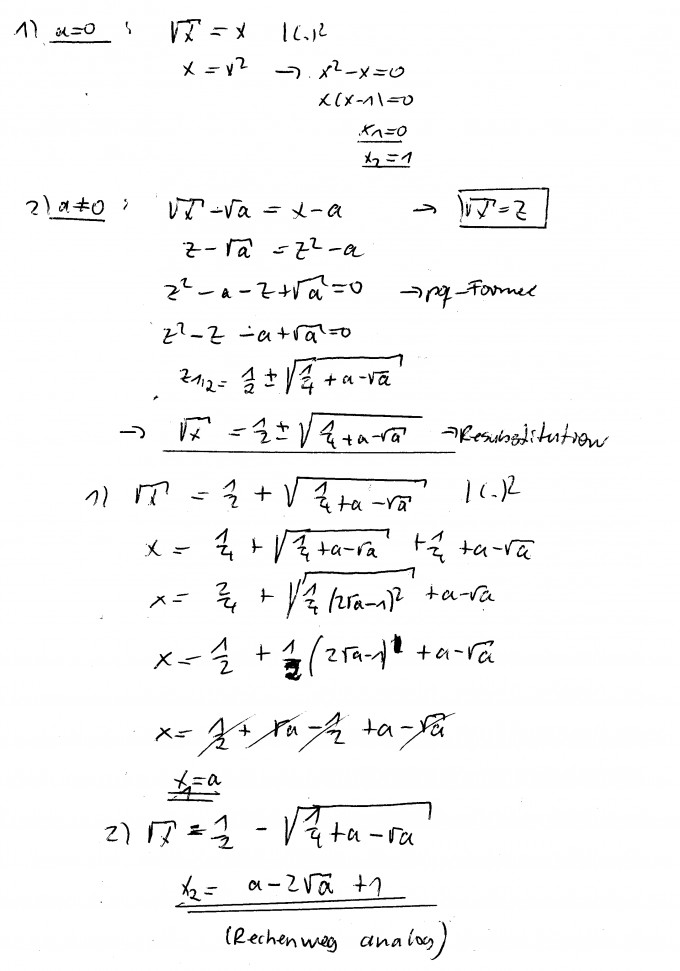 1) a=0 : √x = x |(.)²
x = x² → x²-x=0
x(x-1)=0
x1=0
x2=1
2) a≠0 : √x - √a = x-a → √x = z
z - √a = z² - a
z² - a - z + √a = 0 → pq-Formel
z² - z - a + √a = 0
z1,2 = 1/2 ± √(1/4 + a - √a)
→ √x = 1/2 ± √(1/4 + a - √a) → Resubstitution
1) √x = 1/2 + √(1/4 + a - √a) |(.)²
x = 1/4 + √(1/4 + a - √a) + 1/4 + a - √a
x = 2/4 + √(1/4 (2√a-1)²) + a - √a
x = 1/2 + 1/2 (2√a-1)¹ + a - √a
x = 1/2 + √a - 1/2 + a - √a
x1 = a
2) √x = 1/2 - √(1/4 + a - √a)
x2 = a - 2√a + 1
(Rechenweg analog)